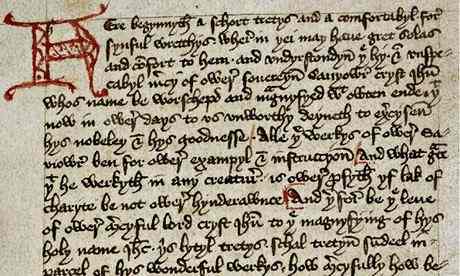 Here begynnyth a schort tretys and a comfortabyl for
synful wrecchys. wher in þei may haue gret solas
and cōfort to hem. and vndyrstondyn þe hy & vnspe
cabyl mcy of ower souereyn Sauyowr cryst ihū
whos name be worschepd and magnyfyed wt owten ende. þt
now in ower days to vs vnworthy deyneth to exercysen
hys nobeley & hys goodnesse. Alle þe werkys of ower Sa
viowr ben for ower exampyl & instruccyon. And what grace
þt he werkyth in any creatur. is ower profyth yf lak of
charyte be not ower hynderawnce. And þerfor be þe leue
of ower mcyful lord cryst ihū to þe magnyfying of hys
holy name ihc. þis lytyl tretys schal tretyn sūdeel in
parcel of hys wonderful werkys. how mcyfully how be